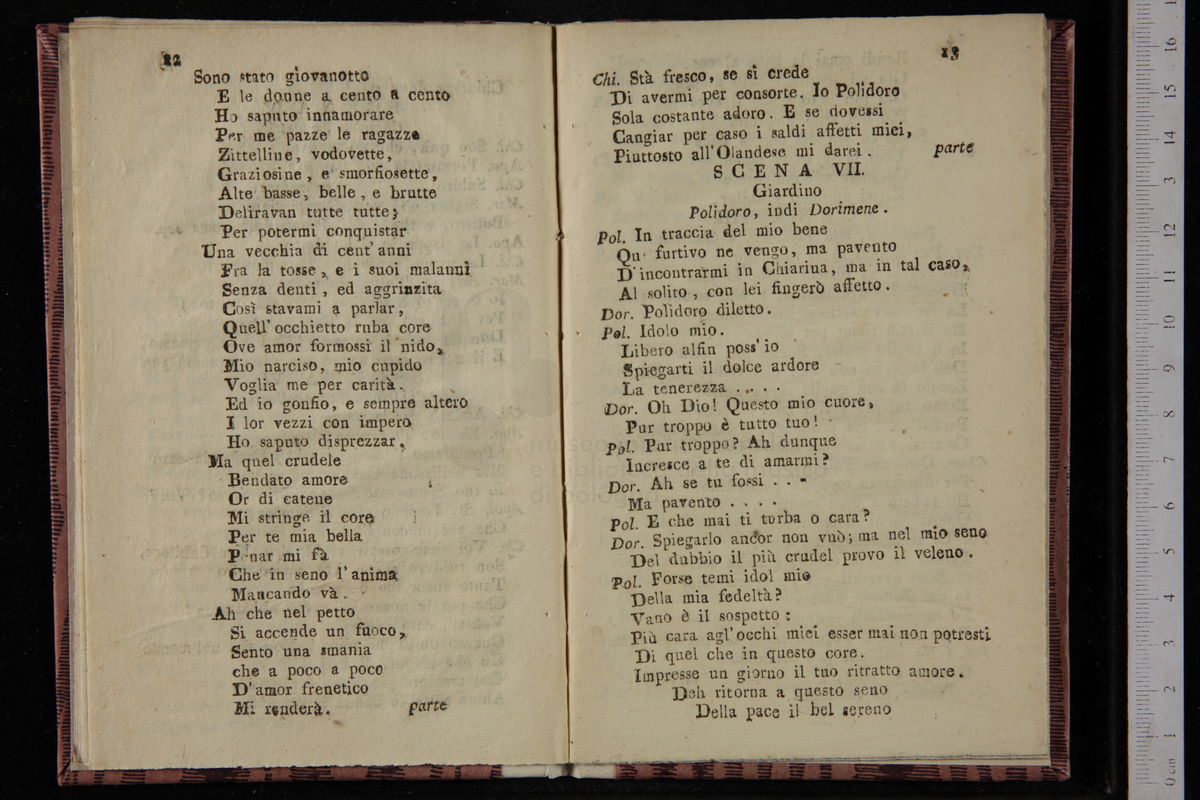 12
Sono stato giovanotto
E le donne a cento a cento
Ho saputo innamorare
Per me pazze le ragazze
Zittelline, vodovette,
Graziosine, e smorfiosette,
Alte basse, belle, e brutte
Deliravan tutte tutte;
Per potermi conquistar
Una vecchia di cent'anni
Fra la tosse, e i suoi malanni
Senza denti, ed aggrinzita
Così stavami a parlar,
Quell'occhietto ruba core
Ove amor formossi il nido,
Mio narciso, mio cupido
Voglia me per carità.
Ed io gonfio, e sempre altero
I lor vezzi con impero
Ho saputo disprezzar,
Ma quel crudele
Bendato amore
Or di catene
Mi stringe il core
Per te mia bella
Penar mi fà
Che in seno l'anima
Mancando và.
Ah che nel petto
Si accende un fuoco,
Sento una smania
che a poco a poco
D'amor frenetico
Mi renderà. parte
13
Chi. Stà fresco, se si crede
Di avermi per consorte. Io Polidoro
Sola costante adoro. E se dovessi
Cangiar per caso i saldi affetti miei,
Piuttosto all'Olandese mi darei. parte
SCENA VII.
Giardino
Polidoro, indi Dorimene.
Pol. In traccia del mio bene
Qui furtivo ne vengo, ma pavento
D'incontrarmi in Chiarina, ma in tal caso,
Al solito, con lei fingerò affetto.
Dor. Polidoro diletto.
Pol. Idolo mio.
Libero alfin poss'io
Spiegarti il dolce ardore
La tenerezza . . . .
Dor. Oh Dio! Questo mio cuore,
Pur troppo è tutto tuo!
Pol. Pur troppo? Ah dunque
Incresce a te di amarmi?
Dor. Ah se tu fossi . . -
Ma pavento . . . .
Pol. E che mai ti turba o cara?
Dor. Spiegarlo ancor non vuò; ma nel mio seno
Del dubbio il più crudel provo il veleno.
Pol. Forse temi idol mio
Della mia fedeltà?
Vano è il sospetto:
Più cara agl'occhi miei esser mai non potresti
Di quel che in questo core.
Impresse un giorno il tuo ritratto amore.
Deh ritorna a questo seno
Della pace il bel sereno